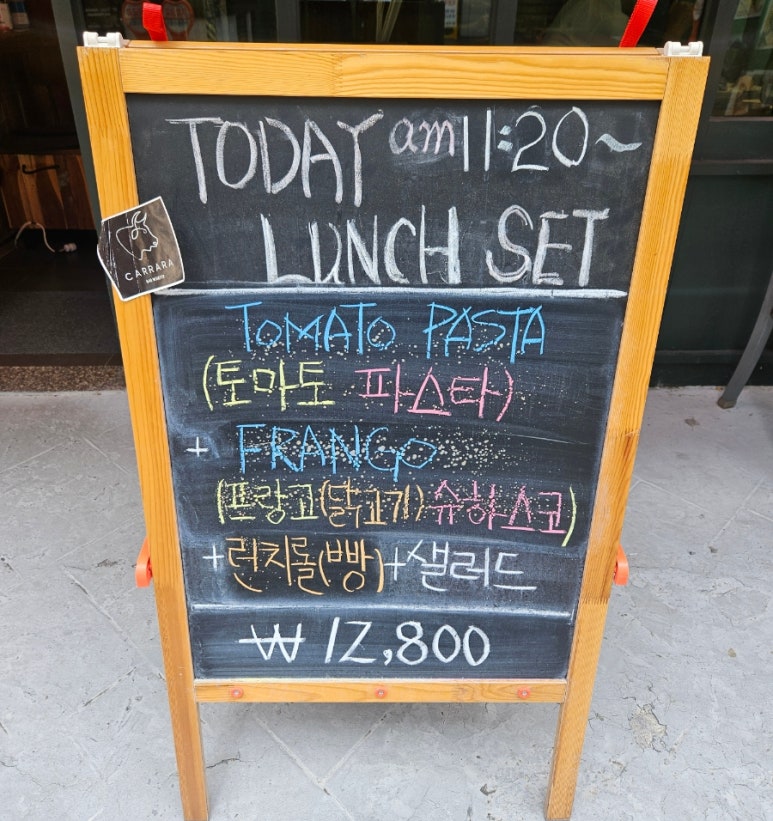 TODAY am 11:20~
LUNCH SET
CARRARA
TOMATO PASTA
(토마토 파스타)
+ FRANGO
(프랑고(닭고기)슈하스코)
+런치롤(빵)+샐러드
₩ 12,800